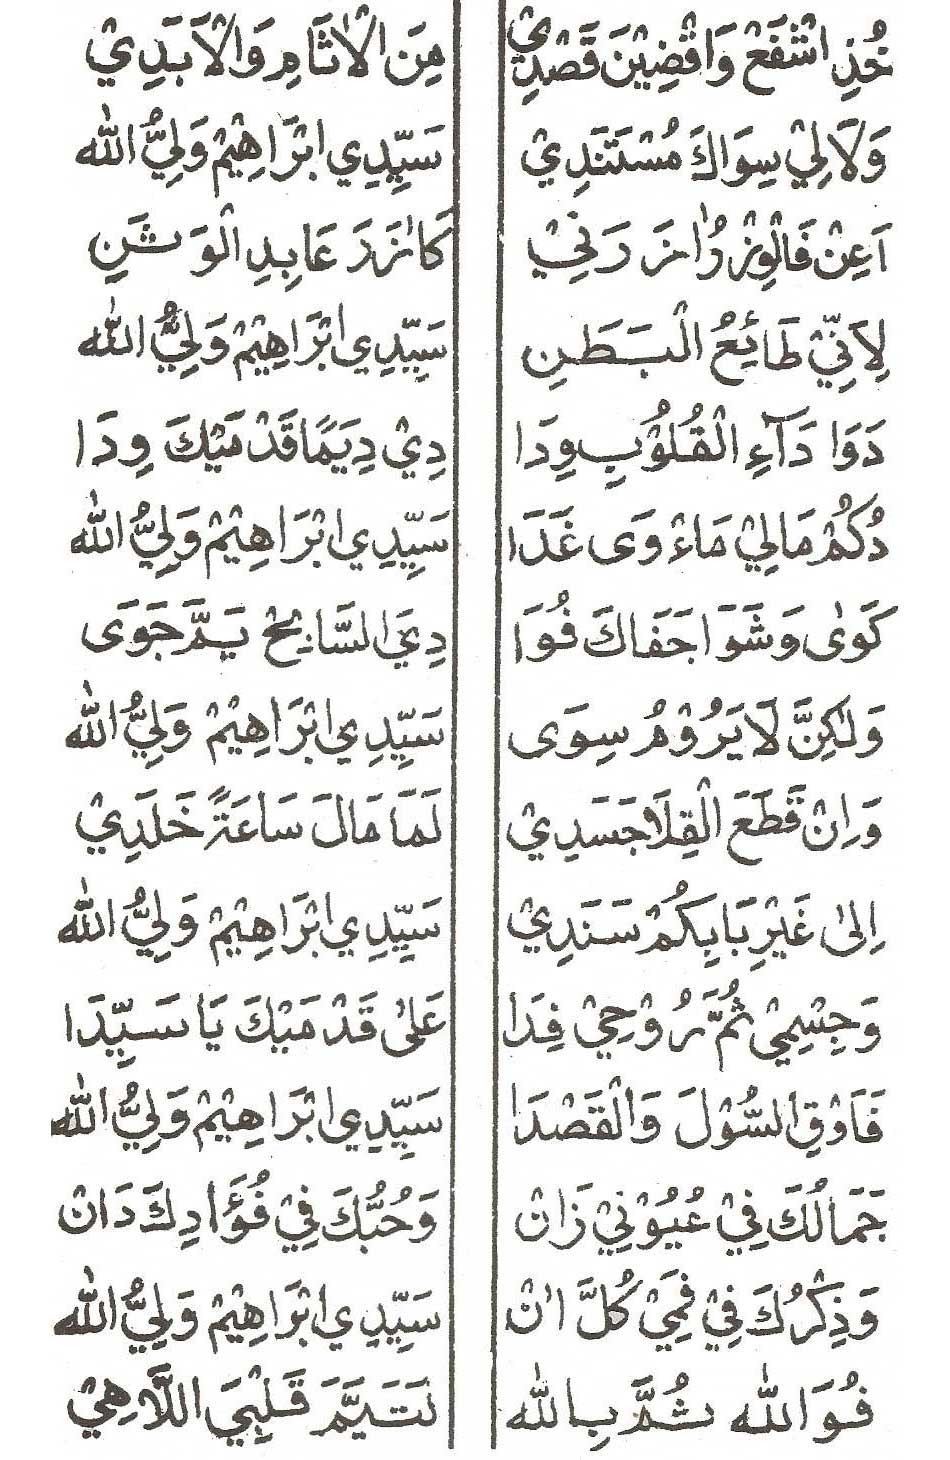 خُذِ اشْفَعْ وَاقْضِيْنَ قَصْدِيْ مِنَ الْاٰثَامِ وَالْاَبَدِيْ
وَلَا لِيْ سِوَاكَ مُسْتَنَدِيْ سَيِّدِي ابْرَاهِيْمْ وَلِيُّ الله
اَعِنْ فَالْوِزْرُ اٰخَرَنِيْ عَابِدِ الْوَثَنِ
لِاَنِّيْ طَائِعُ الْبَطَنِ سَيِّدِي ابْرَاهِيْمْ وَلِيُّ الله
دَوَا دَآءِ الْقُلُوْبِ وِدَا دِيْ دِيَمًا قَدْ مَيْكَ وِدَا
دُكُمْ مَالِيْ مَاءْ وَى غَدَا سَيِّدِي ابْرَاهِيْمْ وَلِيُّ الله
كَوٰى وَشَوَا جَفَاكَ فُوَا دِيَ السَّايِحْ يَمَّ جَوَى
وَلٰكِنَّ لَا يَرُوْمُ سِوَى سَيِّدِي ابْرَاهِيْمْ وَلِيُّ الله
وَاِنْ قَطَعَ الْقِلَا جَسَدِيْ لَمَا مَالَ سَاعَةً خَلَدِيْ
اِلىٰ غَيْرِ بَابِكُمْ سَنَدِيْ سَيِّدِي ابْرَاهِيْمْ وَلِيُّ الله
وَجِسْمِيْ ثُمَّ رُوْحِيْ فِدَا عَلىٰ قَدْ مَيْكَ يَا سَيِّدَا
فَاَوْفِ السُّوْلَ وَالْقَصْدَا سَيِّدِي ابْرَاهِيْمْ وَلِيُّ الله
جَمَالُكَ فِيْ عُيُوْنِيْ زَانْ وَحُبُّكَ فِيْ فُؤَادِكَ دَانْ
وَذِكْرُكَ فِيْ فَمِيْ كُلَّ اٰنْ سَيِّدِي ابْرَاهِيْمْ وَلِيُّ الله
فُوَ الله ثُمَّ بِالله تَتَيَّمَ قَلْبِيَ اللَّاهِيْ